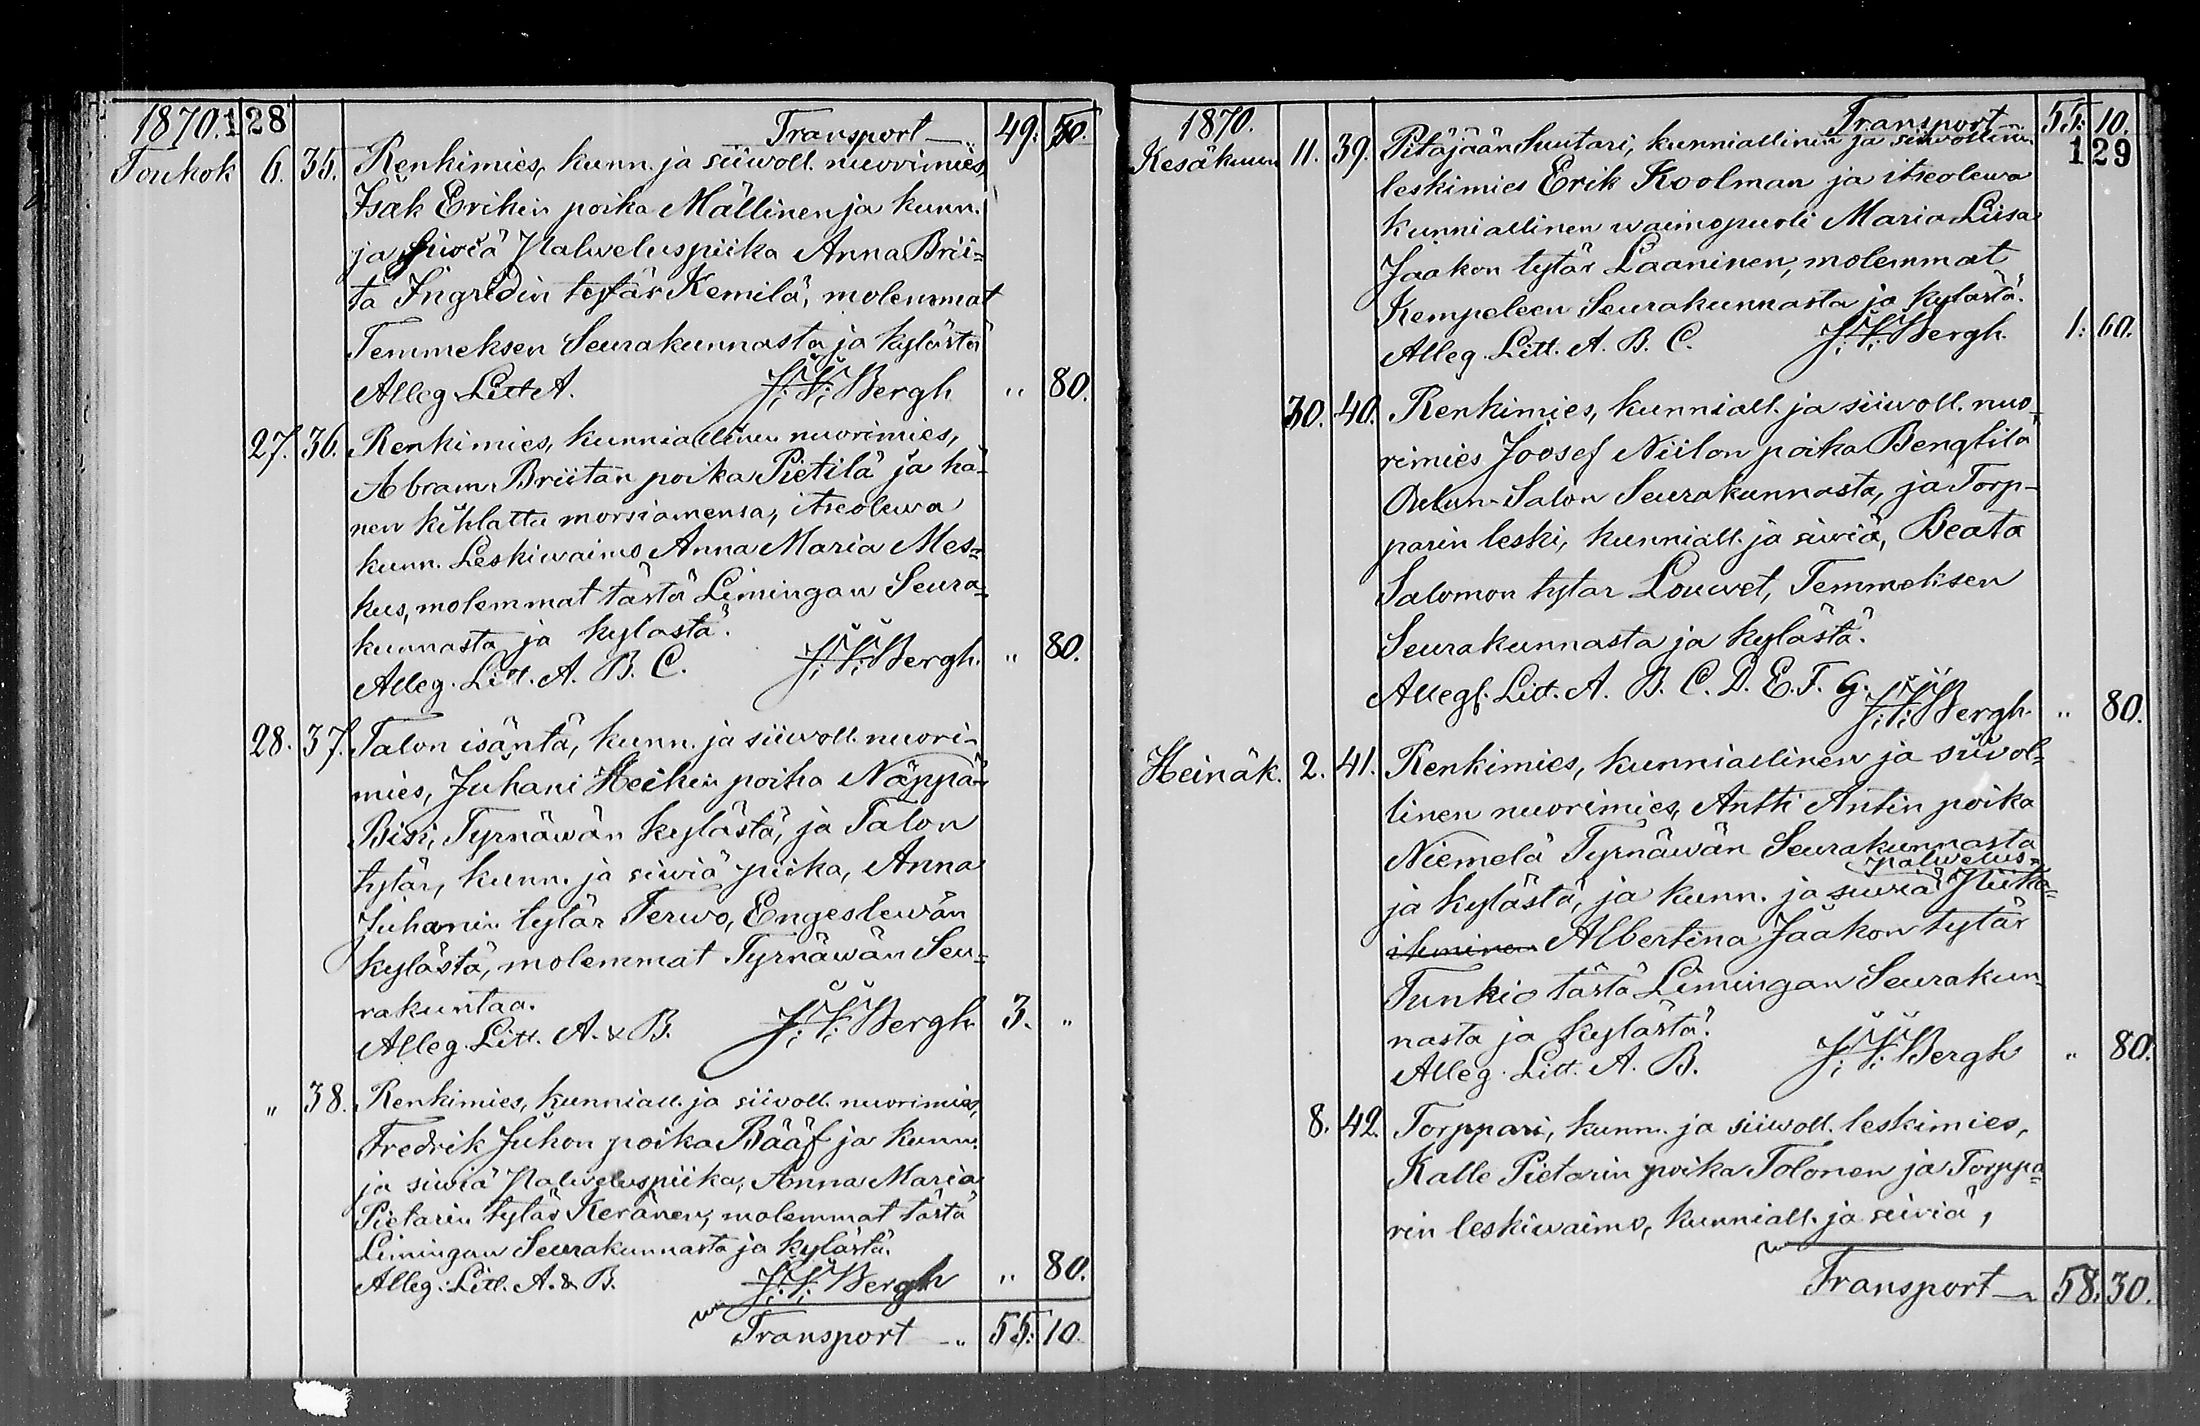 1870. 128 Transport 49: 50.
Toukok 6. 35. Renkimies, kunn. ja siiwoll. nuorimies,
Isak Erikin poika Mällinen ja kunn.
ja siwiä Palweluspiika Anna Brii=
ta Ingredin tytär Kemilä, molemmat
Temmeksen Seurakunnasta ja kylästä
Alleg. Litt A. J. V. Bergh " 80.
27. 36. Renkimies, kunniallinen nuorimies,
Abram Briitan poika Pietilä ja hä-
nen kihlattu morsiamensa, itseolewa
kunn. Leskiwaimo Anna Maria Mes=
kus, molemmat tästä Limingan Seura-
kunnasta ja kylästä.
Alleg. Litt. A. B. C. J. V. Bergh. " 80.
28. 37. Talon isäntä, kunn. ja siiwoll. nuori-
mies, Juhani Heikin poika Näppä
Bisi, Tyrnäwän kylästä, ja Talon
tytär, kunn. ja siwiä piika, Anna
Juhanin tytär Terwo, Engeslewän
kylästä, molemmat Tyrnäwän Seu=
rakuntaa.
Alleg. Litt. A. & B. J. V. Bergh 3. "
" 38. Renkimies, kunniall. ja siiwoll. nuorimies,
Fredrik Juhon poika Bääf ja kunn.
ja siwiä Palweluspiika, Anna Maria
Pietarin tytär Keränen, molemmat tästä
Limingan Seurakunnasta ja kylästä.
Alleg: Litt. A. & B. J. V. Bergh " 80.
Transport 55: 10.
1870. Transport 55: 10.
129
Kesäkuun 11. 39. Pitäjään Suutari, kunniallinen ja siiwollinen
leskimies Erik Koolman ja itseolewa
kunniallinen waimopuoli Maria Liisa
Jaakon tytär Laaninen, molemmat
Kempeleen Seurakunnasta ja kylästä.
Alleg. Litt. A. B. C. J. V. Bergh. 1: 60.
30. 40. Renkimies, kunniall. ja siiwoll. nuo-
rimies Joosef Niilon poika Bengtilä
Oulun-Salon Seurakunnasta, ja Torp-
parin leski, kunniall. ja siwiä, Beata
Salomon tytar Louwet, Temmeksen
Seurakunnasta ja kylästä.
Alleg. Litt. A. B. C. D. E. F. G. J. V. Bergh. " 80.
Heinäk. 2. 41. Renkimies, kunniallinen ja siiwol=
linen nuorimies, Antti Antin poika
Niemelä Tyrnäwän Seurakunnasta
palwelus=
ja kylästä, ja kunn. ja siwiä Piika=
Albertina Jaakon tytär
Tunkio tästä Limingan Seurakun-
nasta ja kylästä.
Alleg. Litt. A. B. J. V. Bergh " 80.
8. 42. Torppari, kunn. ja siiwoll. leskimies,
Kalle Pietarin poika Tolonen ja Torppa=
rin leskiwaimo, kunniall. ja siwiä,
Transport 58. 30.